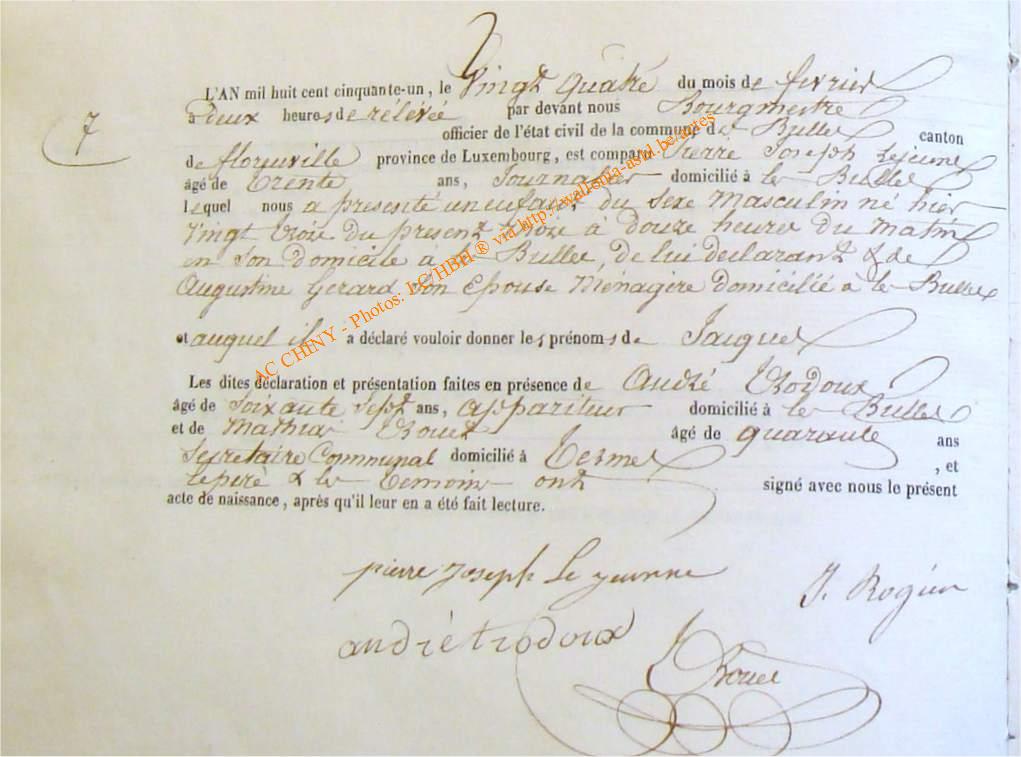 L'AN mil huit cent cinquante-un, le Vingt Quatre du mois de fevrier
à Deux heures de rélévée par devant nous Bourgmestre
7
officier de l'état civil de la commune des Bulles canton
de florenville province de Luxembourg, est comparu Pierre Joseph Lejeune
âgé de Trente ans, Journalier domicilié à les Bulles
lequel nous a presenté un enfant du sexe Masculin né hier
Vingt trois du present Mois à Douze heures du Matin
en son domicile à les Bulles, de lui declarant & de
Augustine Gerard son Epouse Ménagère domiciliée à les Bulles
et auquel il a déclaré vouloir donner les prénoms de Jacques
Les dites déclaration et présentation faites en présence de André Trodoux
âgé de soixante sept ans, appariteur domicilié à les Bulles
et de Mathias âgé de quarante ans
Secretaire Communal domicilié à Termes , et
le peré & les temoins ont signé avec nous le présent
acte de naissance, après qu'il leur en a été fait lecture.
pierre Joseph Le jeunne
J. Rogier
andré trodoux
AC CHINY - Photos: LC/HBH ® via http://wallonia-asbl.be/actes